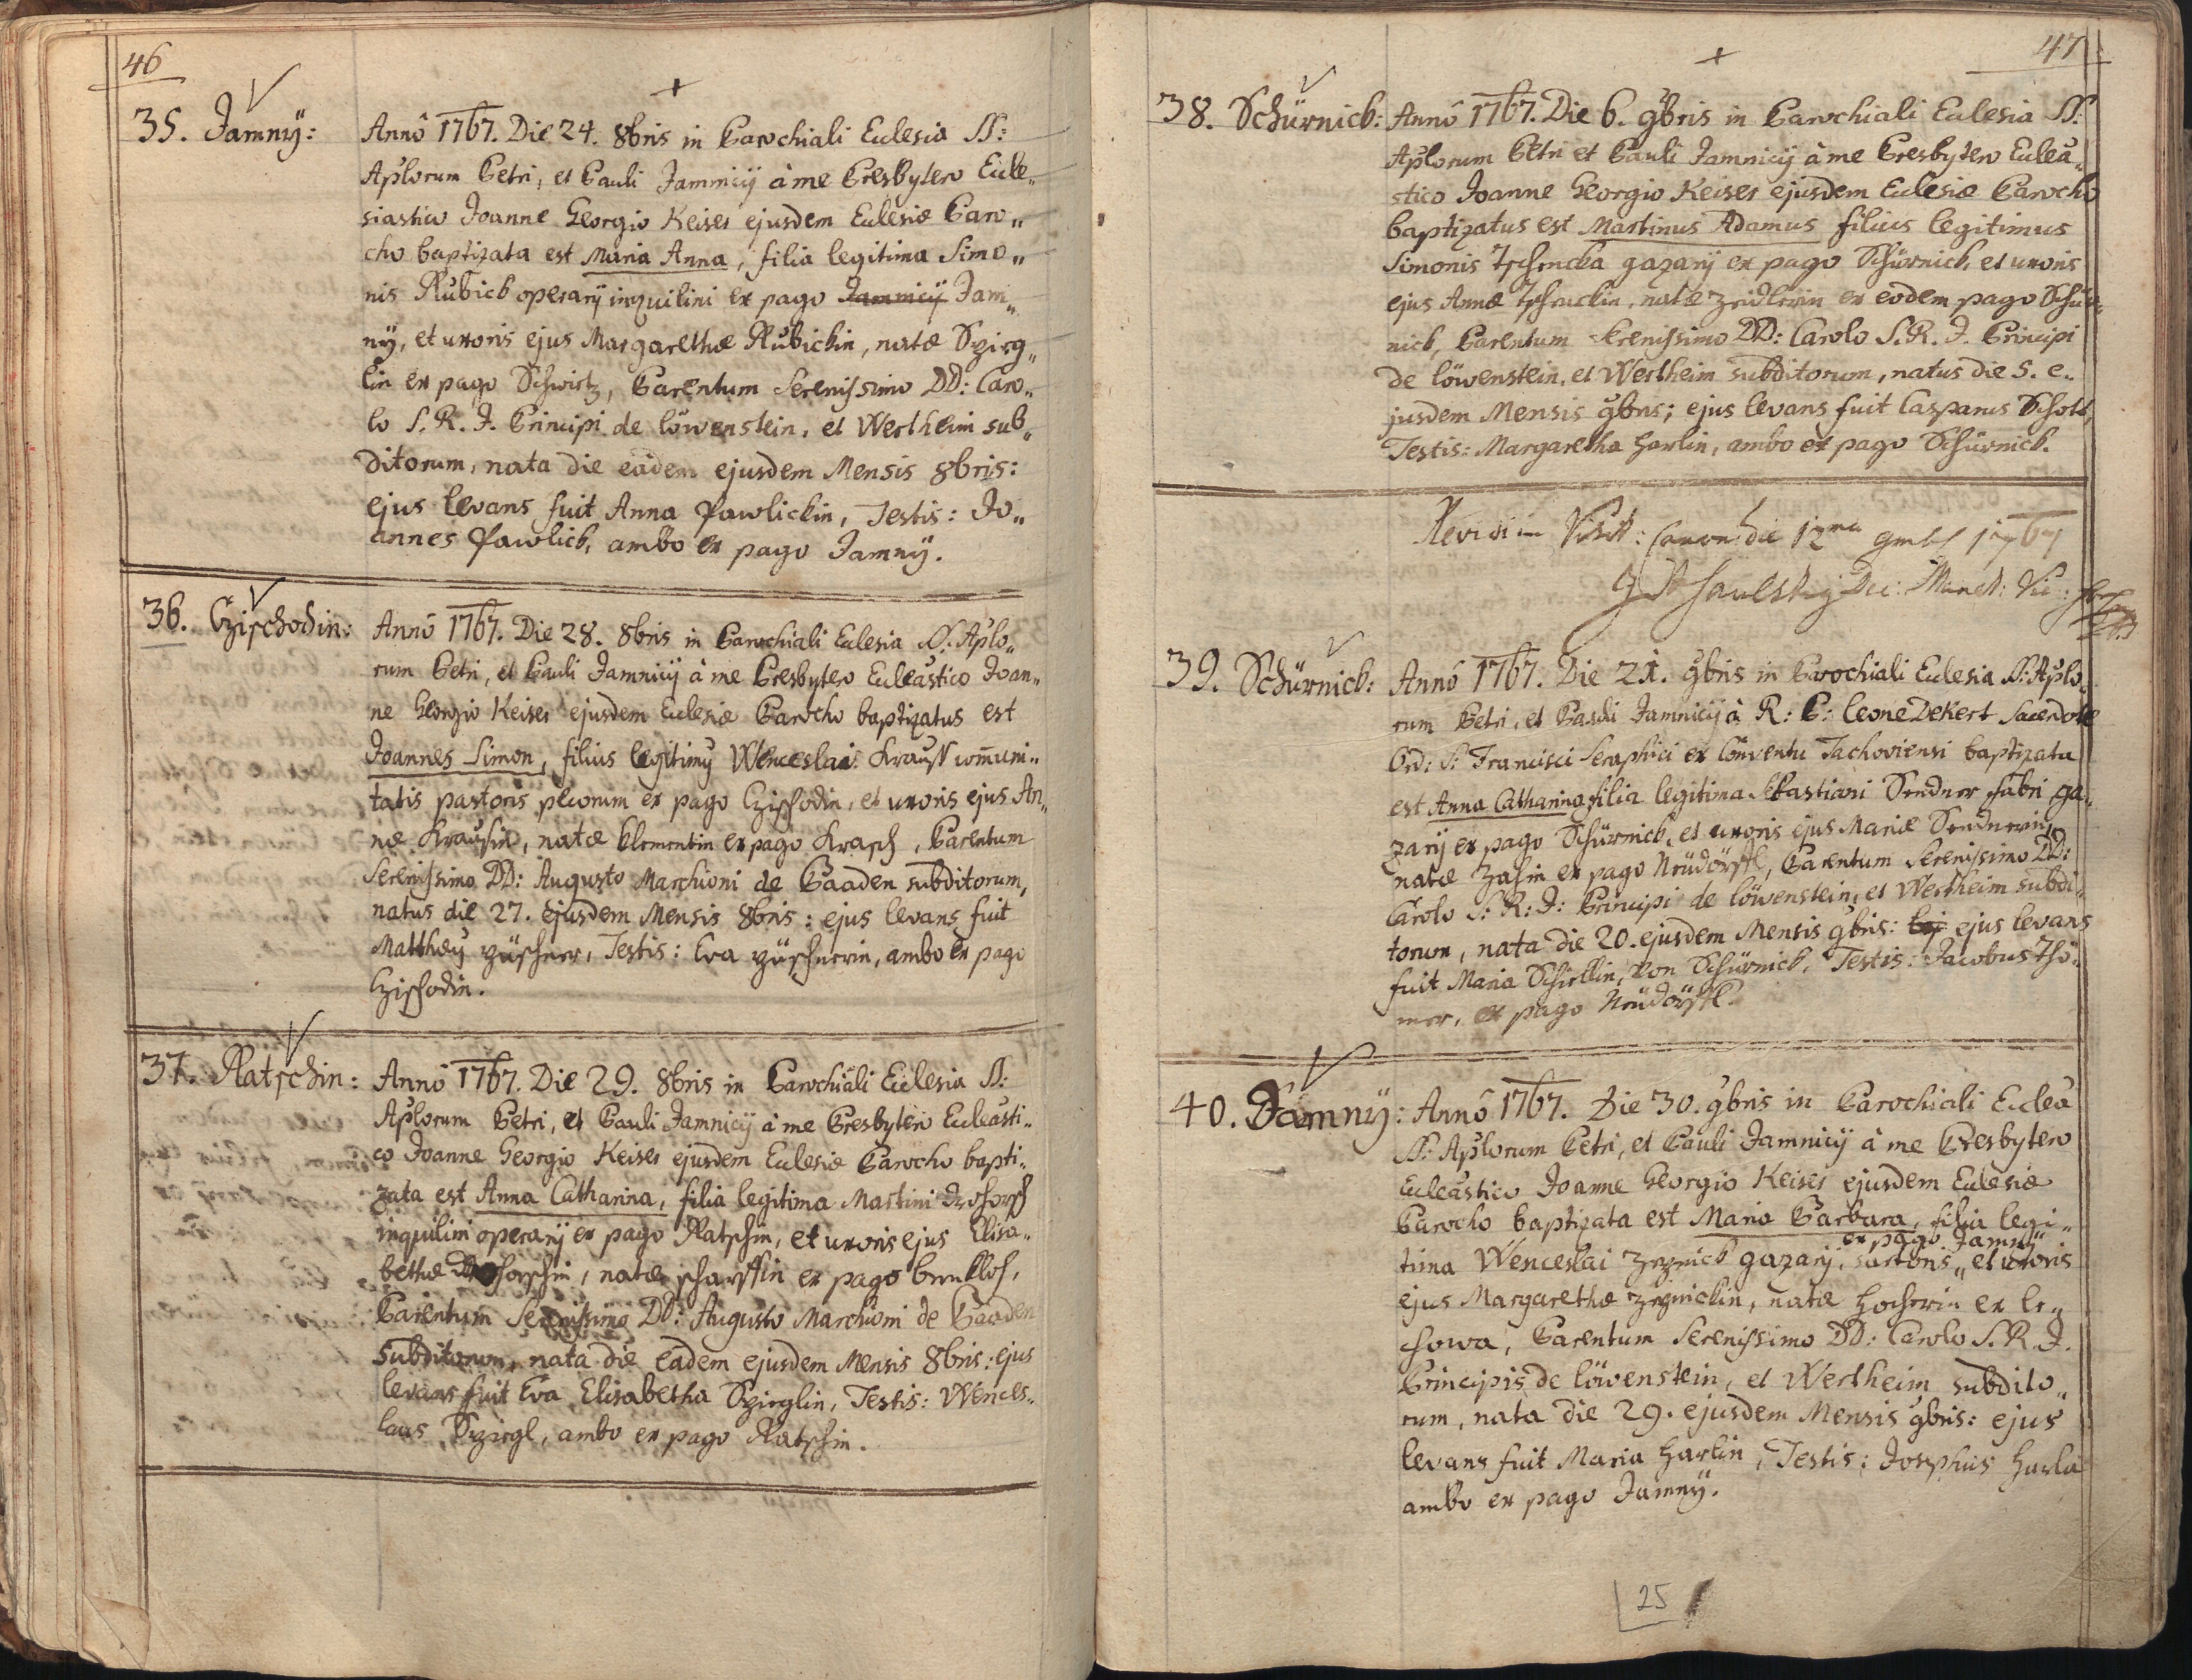 46
35. Jamnÿ: Annô 1767. Die 24. 8bris in Parochiali Ecclesia SS:
Aplorum Petri, et Pauli Jamnicÿ à me Presbytero Eccle„
siastico Joanne Georgio Keiser ejusdem Ecclesiæ Paro„
cho baptizata est Maria Anna, filia legitima Simo„
nis Rubick operarÿ inquilini ex pago Jamnicÿ Jam„
nÿ, et uxoris ejus Margarethæ Rubickin, natæ Szirg„
lin ex pago Schwirtz, Parentum Serenissimo DD: Caro„
lo S. R. J. Principi de löwenstein, et Wertheim sub„
ditorum, nata die eâdem ejusdem Mensis 8bris:
ejus levans fuit Anna Pawlickin, Testis: Jo„
annes Pawlick, ambo ex pago Jamnÿ.
36. Czischodin: Annô 1767. Die 28. 8bris in Parochiali Eclesia SS: Aplo„
rum Petri, et Pauli Jamnicÿ à me Presbytero Eccleastico Joan„
ne Georgio Keiser ejusdem Eclesiæ Parocho baptizatus est
Joannes Simon, filius legitimy Wenceslai Krauss com̄uni„
tatis pastoris pecorum ex pago Czischodin, et uxoris ejus An„
næ Kraussin, natæ Klementin ex pago Krasch, Parentum
Serenissimo DD: Augusto Marchioni de Baaden subditorum,
natus die 27. ejusdem Mensis 8bris: ejus levans fuit
Matthæy züschner, Testis: Eva züschnerin, ambo ex pago
Czischodin.
37. Ratschin: Annô 1767. Die 29. 8bris in Parochiali Eclesia SS:
Aplorum Petri, et Pauli Jamnicÿ à me Presbytero Eccleasti„
co Joanne Georgio Keiser ejusdem Eclesiæ Parocho bapti„
zata est Anna Catharina, filia legitima Martini
inquilini operarÿ ex pago Ratschin, et uxoris ejus Elisa„
bethæ natæ ex pago
Parentum Serenissimo DD: Augusto Marchioni de Baaden
Subditorum, nata die eadem ejusdem Mensis 8bris: ejus
levans fuit Eva Elisabetha Szirglin, Testis: Wences„
laus Szirgl, ambo ex pago Ratschin.
47
38. Schürnick: Annô 1767. Die 6. 9bris in Parochiali Eclesia SS:
Aplorum Petri et Pauli Jamnicÿ à me Presbytero Eclea„
stico Joanne Georgio Keiser ejusdem Eclesiæ Parocho
baptizatus est Martinus Adamus filius legitimus
Simonis gazarÿ ex pago Schürnick, et uxoris
ejus Annæ natæ zeidlerin ex eodem pago Schür„
nick, Parentum Serenissimo DD: Carolo S. R. J. Principi
de löwenstein, et Wertheim subditorum, natus die 5. e„
jusdem Mensis 9bris; ejus levans fuit Casparus Schott,
Testis: Margaretha Harlin, ambo ex pago Schürnick.
Revidi in Visit: Canon: die 12ma 9mbs 1767
39. Schürnick: Annô 1767. Die 21. 9bris in Parochiali Eclesia SS: Aplo„
rum Petri, et Pauli Jamnicÿ à R: P: leone Dekert Sacerdote
Ord: S: Francisci Seraphici ex Conventu Tachoviensi baptizata
est Anna Catharina filia legitima Sebastiani Sendner fabri ga„
zarÿ ex pago Schürnick, et uxoris ejus Mariæ Sendnerin,
natæ zahin ex pago Neüdörffl, Parentum Serenissimo DD:
Carolo S: R: J: Principi de löwenstein, et Wertheim subdi„
torum, nata die 20. ejusdem Mensis 9bris: ejus levans
fuit Maria Schiellin, von Schürnick, Testis: Jacobus Thö„
mer, ex pago Neüdörffl.
40. Jamnÿ: Annô 1767. Die 30. 9bris in Parochiali Eclea
SS: Aplorum Petri, et Pauli Jamnicÿ à me Presbytero
Ecleastico Joanne Georgio Keiser ejusdem Eclesiæ
Parocho baptizata est Maria Barbara, filia legi„
ex pago Jamnÿ
tima Wenceslai gazarÿ, sartoris „ et uxoris
ejus Margarethæ natæ Hoserin ex le„
sowa, Parentum Serenissimo DD: Carolo S. R. J.
Principis de löwenstein, et Wertheim subdito„
rum, nata die 29. ejusdem Mensis 9bris: ejus
levans fuit Maria Harlin, Testis: Josephus Harla
ambo ex pago Jamnÿ.
25